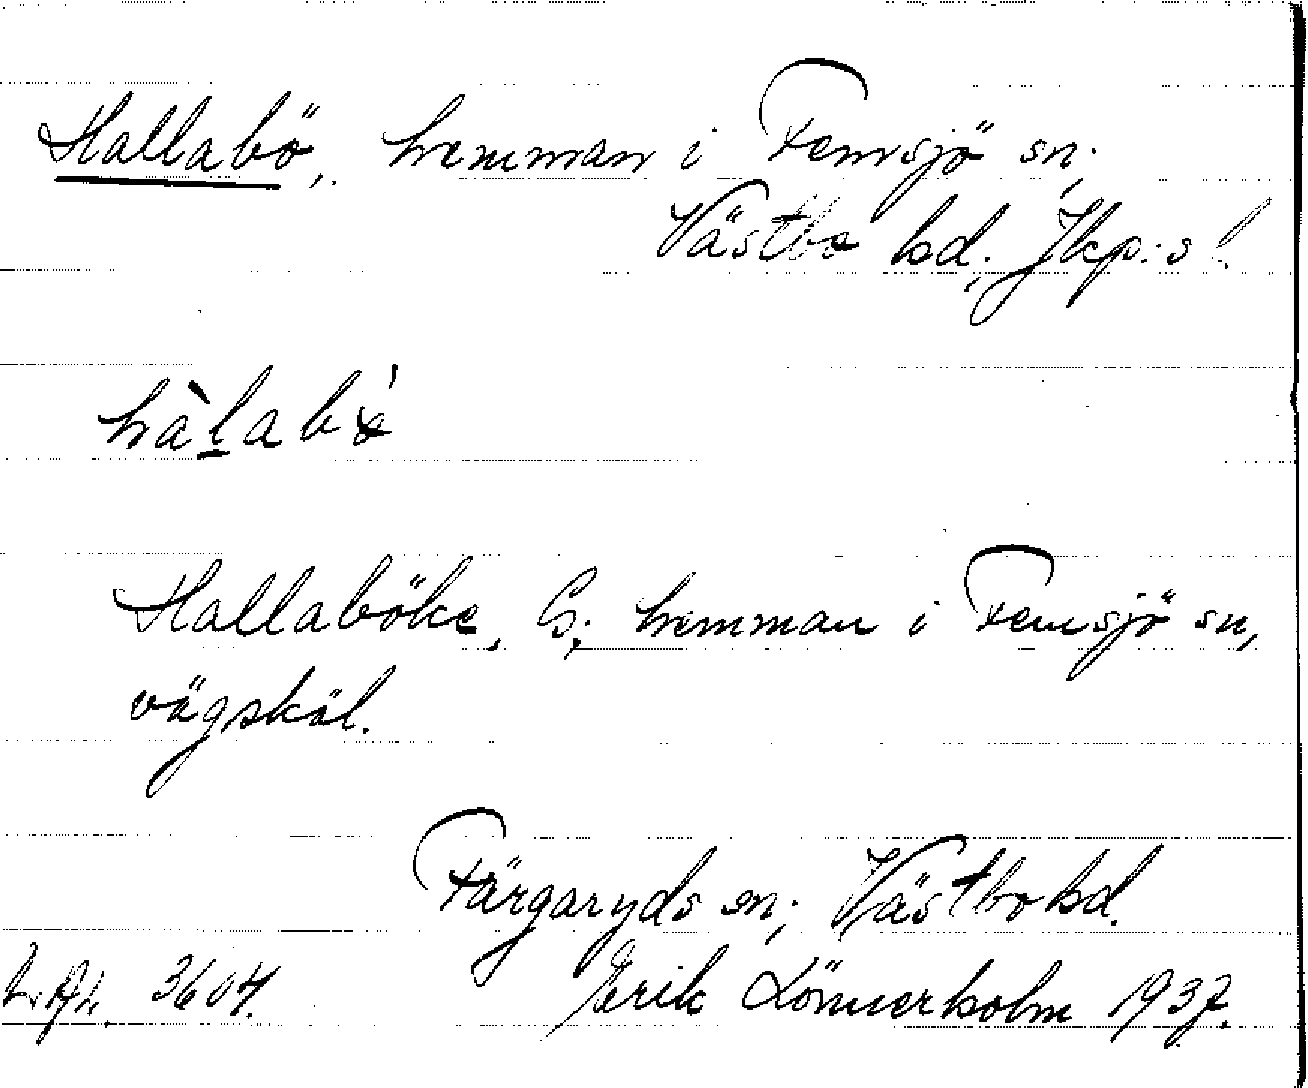 Hallabö, hemman i Femsjö sn;
Västbo hd, Jkp:s l.
hàlabö́
Hallaböke, G; hemman i Femsjö sn,
vägskäl.
Färgaryds sn; Västbo hd.
3604. Erik Lönnerholm 1937.